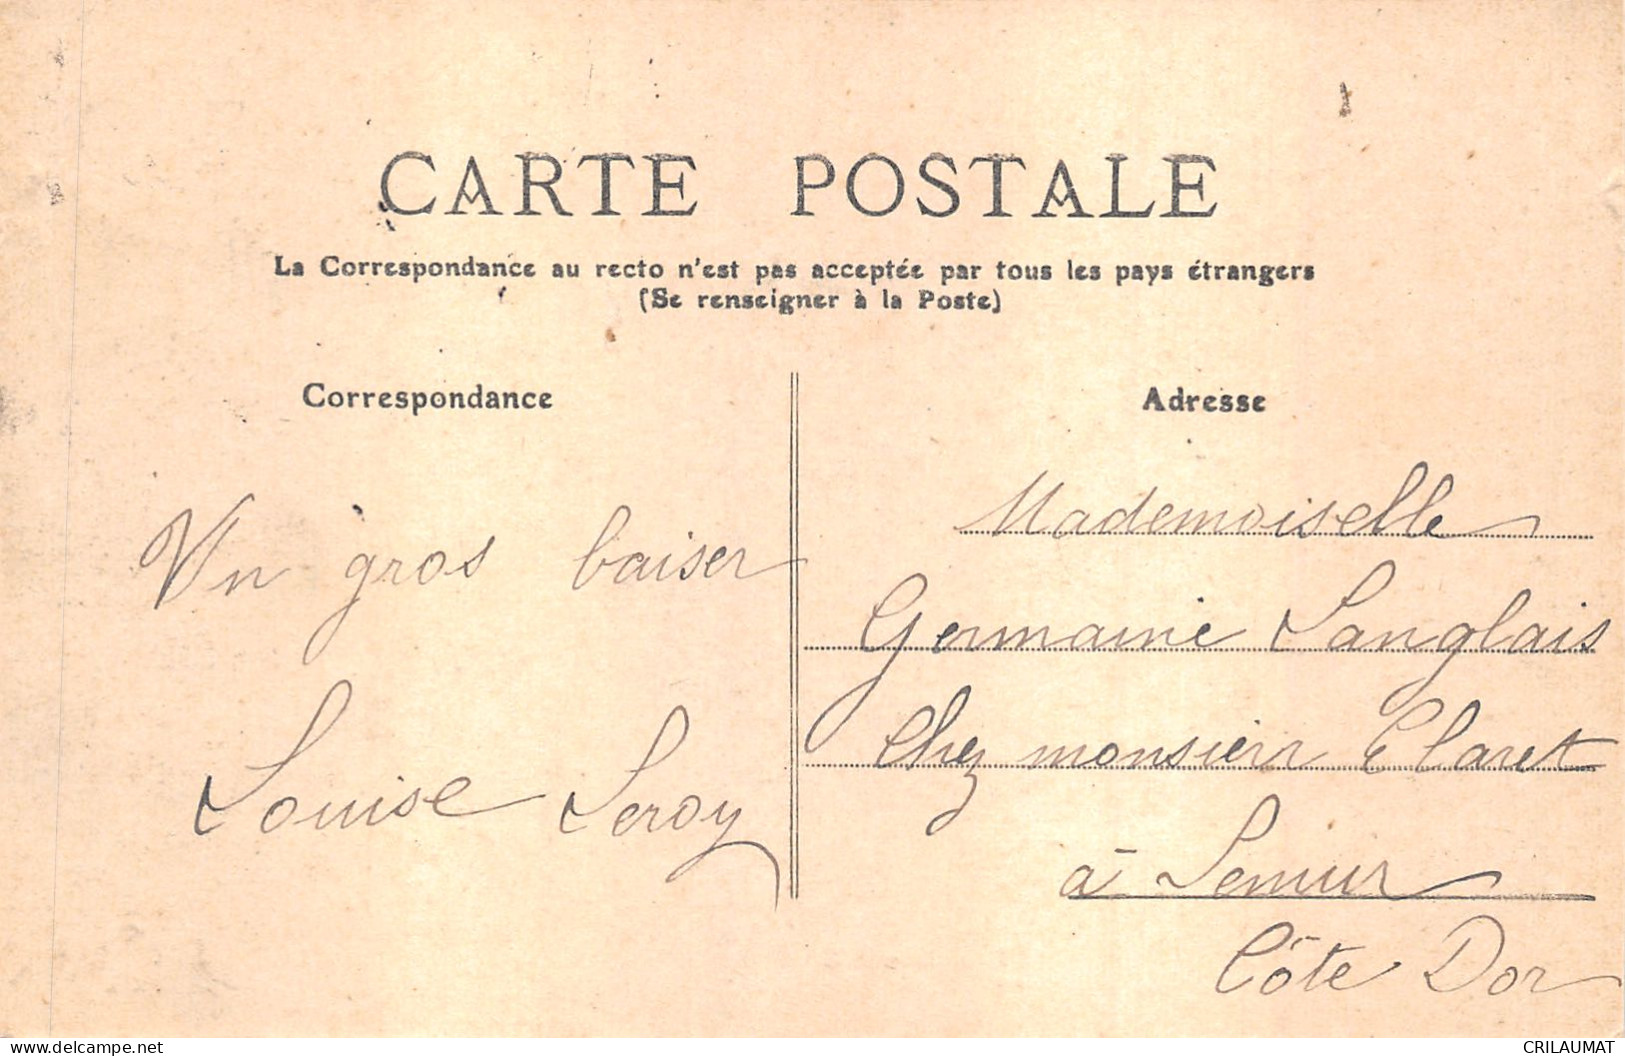 CARTE POSTALE
La Correspondance au recto n'est pas acceptée par tous les pays étrangers
(Se renseigner à la Poste)
Correspondance
Un gros baiser
Louise Leroy
Adresse
Mademoiselle
Germaine Langlais
Chez monsieur Claret
à Semur
Côte Dor
www.delcampe.net
CRILAUMAT